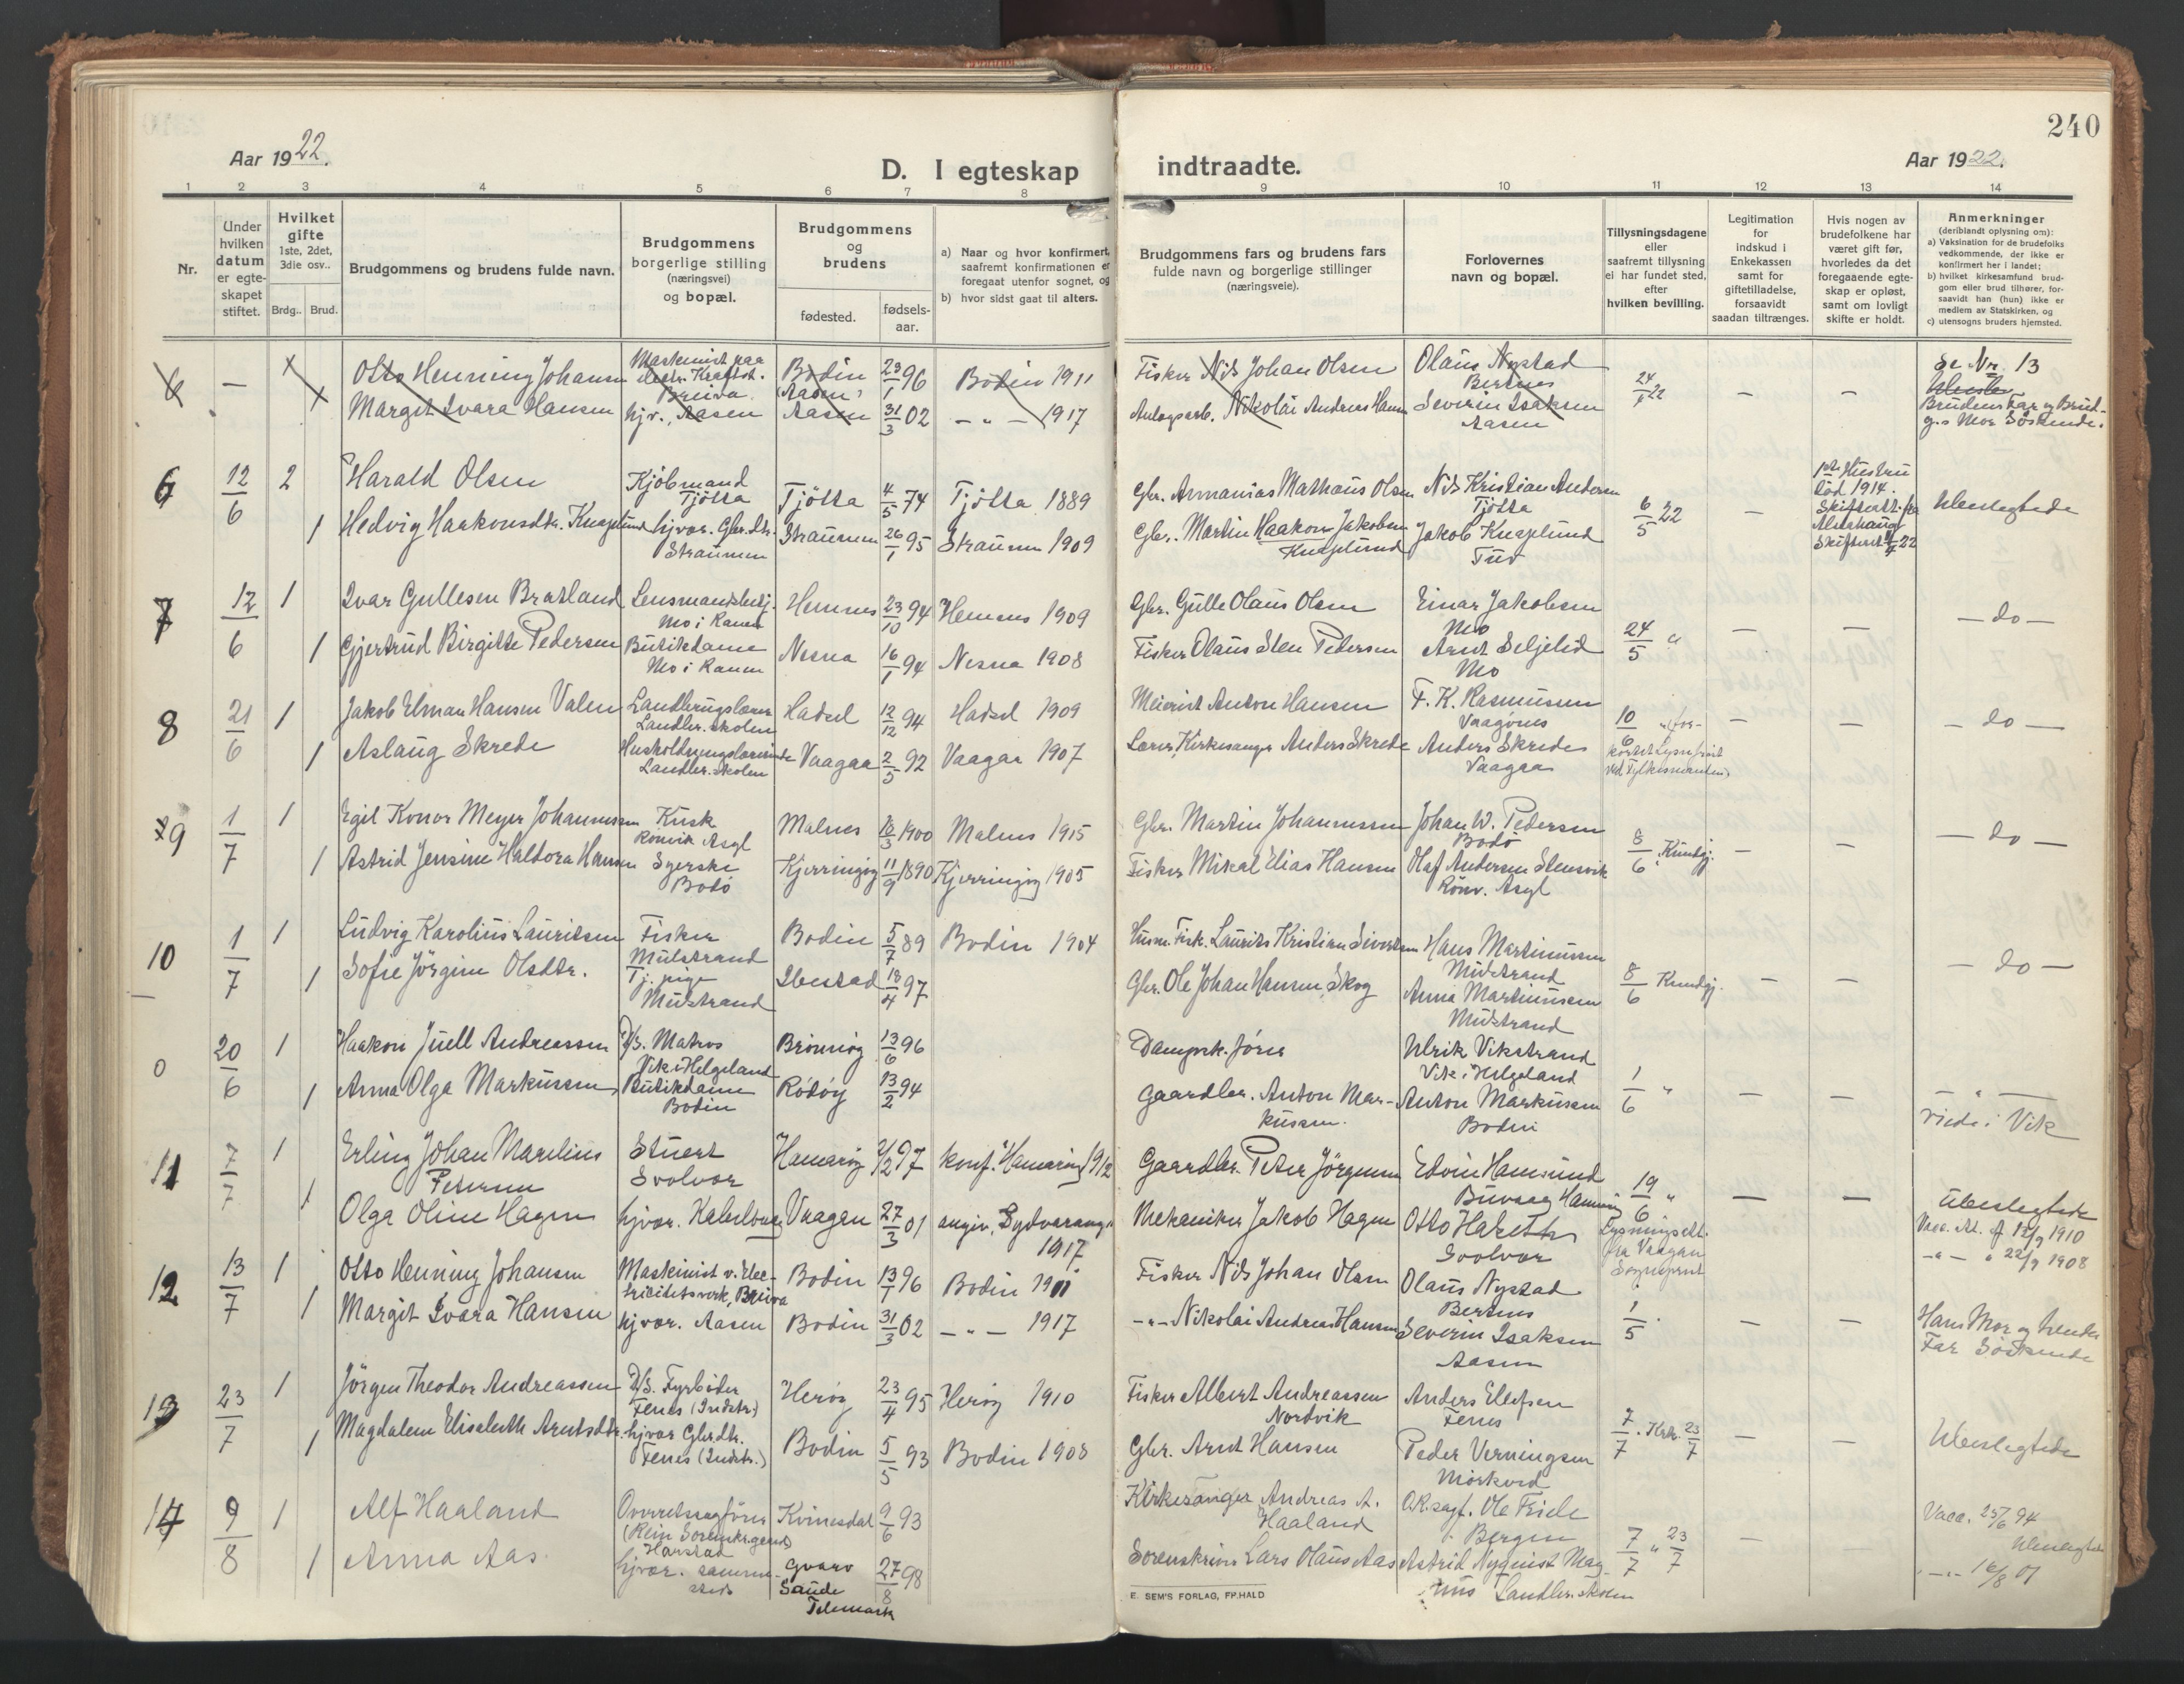 240
Aar 1922.
D. I egteskap indtraadte.
Aar 1922.
1 2 3 4 5 6 7 8 9 10 11 12 13 14
Nr.
Under hvilken datum er egteskapet stiftet.
Hvilket gifte 1ste, 2det, 3die osv..
Brdg.. Brud.
Brudgommens og brudens fulde navn.
Brudgommens borgerlige stilling (næringsvei) og bopæl.
Brudgommens og brudens
fødested.
fødsels-aar.
a) Naar og hvor konfirmert, saafremt konfirmationen er foregaat utenfor sognet, og
b) hvor sidst gaat til alters.
Brudgommens fars og brudens fars fulde navn og borgerlige stillinger (næringsveie).
Forlovernes navn og bopæl.
Tillysningsdagene eller saafremt tillysning ei har fundet sted, efter hvilken bevilling.
Legitimation for indskud i Enkekassen samt for giftetilladelse, forsaavidt saadan tiltrænges.
Hvis nogen av brudefolkene har været gift før, hvorledes da det foregaaende egteskap er opløst, samt om lovligt skifte er holdt.
Anmerkninger (deriblandt oplysning om):
a) Vaksination for de brudefolks vedkommende, der ikke er konfirmert her i landet;
b) hvilket kirkesamfund brudgom eller brud tilhører, forsaavidt han (hun) ikke er medlem av Statskirken, og
c) utensogns bruders hjemsted.
6 — Otto Henning Johansen Maskinist paa Bodin (Aasen) 23/1 96 Bodin 1911 Fisker Nils Johan Olsen Olaus Nystad Bertnes 24/1 22 — — Se Nr. 13
Margit Ivara Hansen hjv., Aasen Aasen 31/3 02 — " — 1917 Anlagsarb. Nikolai Andreas Hansen Severin Isaksen Aasen Brudens Far og Brudg.s Mor Söskende.
6 12/6 2 Harald Olsen Kjöbmand Tjötta Tjötta 4/5 74 Tjötta 1889 Gbr. Annanias Mathæus Olsen Nils Kristian Andersen Tjötta 6/5 22 — 1ste Hustru död 1914. Skifteatt. fra Alstahaug Ubeslegtede
1 Hedvig Haakonsdtr. Knaplund hjvær. Gbr.dtr. Straumen Straumen 26/1 95 Straumen 1909 Gbr. Martin Haakon Jakobsen Knaplund Jakob Knaplund Tuv
7 12/6 1 Ivar Gullesen Bratland Lensmandsbetj. Mo i Ranen Hemnes 23/10 94 Hemnes 1909 Gbr. Gulle Olaus Olsen Einar Jakobsen Mo 24/5 " — — — do —
1 Gjertrud Birgitte Pedersen Butikdame Mo i Ranen Nesna 16/1 94 Nesna 1908 Fisker Olaus Sten Pedersen Arnt Seljelid Mo
8 21/6 1 Jakob Elman Hansen Valen Landbrugslærer Landbr. skolen Hadsel 12/12 94 Hadsel 1909 Meierist Anton Hansen F. K. Rasmussen Vaagönes 10/6 — — — do —
1 Aslaug Skrede Husholdningslærerinde Landbr. skolen Vaagaa 2/5 92 Vaagaa 1907 Lærer, Kirkesanger Anders Skrede Anders Skrede Vaagaa
9 1/7 1 Egil Konor Meyer Johannessen Kusk Rönvik Asyl Malnes 18/3 1900 Malnes 1915 Gbr. Martin Johannessen Johan W. Pedersen Bodö 8/6 Kundgj. — — — do —
1 Astrid Jensine Haldora Hansen Syerske Bodö Kjerringöy 11/9 1890 Kjerringöy 1905 Fisker Mikal Elias Hansen Olaf Andersen Stensvik Rönv. Asyl
10 1/7 1 Ludvig Karolius Lauritsen Fisker Mulstrand Bodin 5/7 89 Bodin 1904 Husm. Fisk. Laurits Kristian Sivertsen Hans Martinussen Mulstrand 8/6 Kundgj. — — — do —
1 Sofie Jörgine Olsdtr. Tj. pige Mulstrand Ibestad 18/4 97 Gbr. Ole Johan Hansen Skog Anna Martinussen Mulstrand
0 20/6 1 Haakon Juell Andreassen D/S. Matros Vik i Helgeland Brönnöy 13/6 96 Dampsk. förer Ulrik Vikstrand Vik i Helgeland 1/6 " — —
1 Anna Olga Markussen Butikdame Bodin Rödöy 13/2 94 Gaardbr. Anton Markussen. Anton Markussen Bodin Viede i Vik
11 7/7 1 Erling Johan Marelius Petersen Stuert Svolvær Hamaröy 2/2 97 konf. Hamaröy 1912 Gaardbr. Peter Jörgensen Edvin Hamsund Buvaag Hamaröy 19/6 " — — Ubeslegtede
1 Olga Oline Hagen hjvær. Kabelvaag Vaagan 27/3 01 angiv. Sydvaranger 1917 Mekaniker Jakob Hagen Otto Svolvær Lysningsatt. fra Vaagan Sogneprest Vacc. At. af 12/9 1910 — " — " 22/9 1908
12 13/7 1 Otto Henning Johansen Maskinist v. Electricitetsverk, Breiva Bodin 13/1 96 Bodin 1911 Fisker Nils Johan Olsen Olaus Nystad Bertnes 1/5 — —
1 Margit Ivara Hansen hjvær. Aasen Bodin 31/3 02 — " — 1917 — " — Nikolai Andreas Hansen Severin Isaksen Aasen Hans Mor og hendes Far Söskende
13 23/7 1 Jörgen Theodor Andreassen D/S. Fyrböder Fenes (Indstr.) Heröy 23/4 95 Heröy 1910 Fisker Albert Andreassen Nordvik Anders Ellefsen Fenes 7/7 . 23/7 — — Ubeslegtede
1 Magdalene Elisabeth Arntsdtr. hjvær Gbr.dtr. Fenes (Indstr.) Bodin 5/5 93 Bodin 1908 Gbr. Arnt Hansen Peder Verningsen Mörkved
14 9/8 1 Alf Haaland Overretssagförer Harstad Kvinesdal 9/6 93 Kirkesanger Andreas A. Haaland O.R.sagf. Ole Friele Bergen 7/7 " 23/7 — — Vacc. 25/6 94 Ubeslegtede
1 Anna Aas hjvær. sammesteds Gvarv Saude Telemark 27/8 98 Sorenskriver Lars Olaus Aas Astrid Nyquist Magnus Landbr. skolen — " — 16/8 01
E. SEM'S FORLAG, FR.HALD